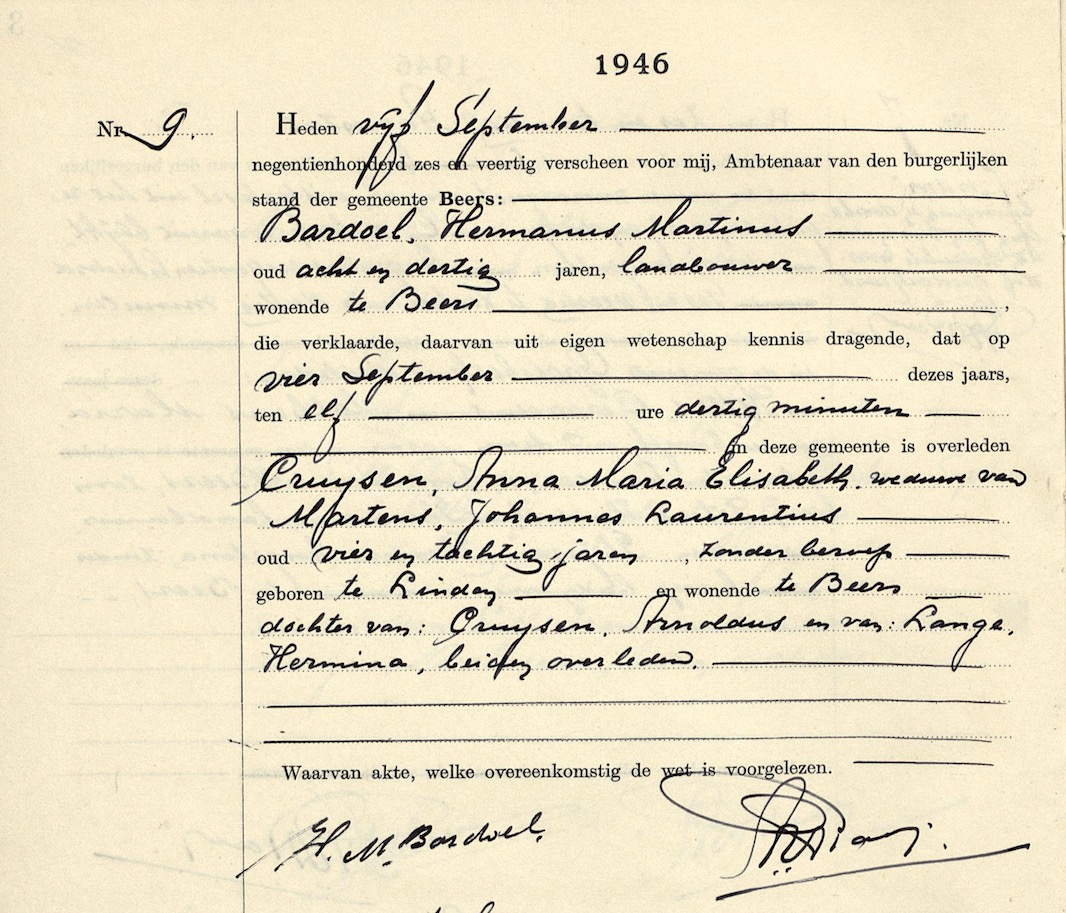 1946
Nr. 9.
Heden vijf September
negentienhonderd zes en veertig verscheen voor mij, Ambtenaar van den burgerlijken
stand der gemeente Beers:
Bardoel, Hermanus Martinus
oud acht en dertig jaren, landbouwer
wonende te Beers,
die verklaarde, daarvan uit eigen wetenschap kennis dragende, dat op
vier September dezes jaars,
ten elf ure dertig minuten
in deze gemeente is overleden
Cruijsen, Anna Maria Elisabeth. weduwe van
Martens, Johannes Laurentius
oud vier en tachtig jaren, zonder beroep
geboren te Linden en wonende te Beers
dochter van: Cruijsen, Arnoldus en van: Lange,
Hermina, beiden overleden.
Waarvan akte, welke overeenkomstig de wet is voorgelezen.
H. M. Bardoel.